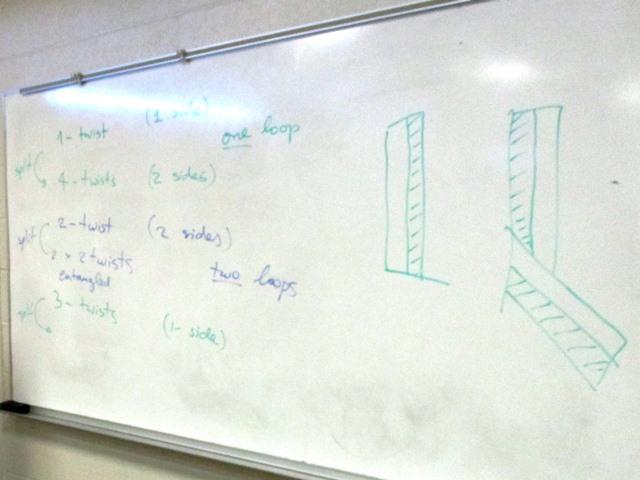 1-twist (1 side)
one loop
split
4-twists (2 sides)
2-twist (2 sides)
split
2 x 2 twists
entangled
two loops
3-twists
split
(1-side)